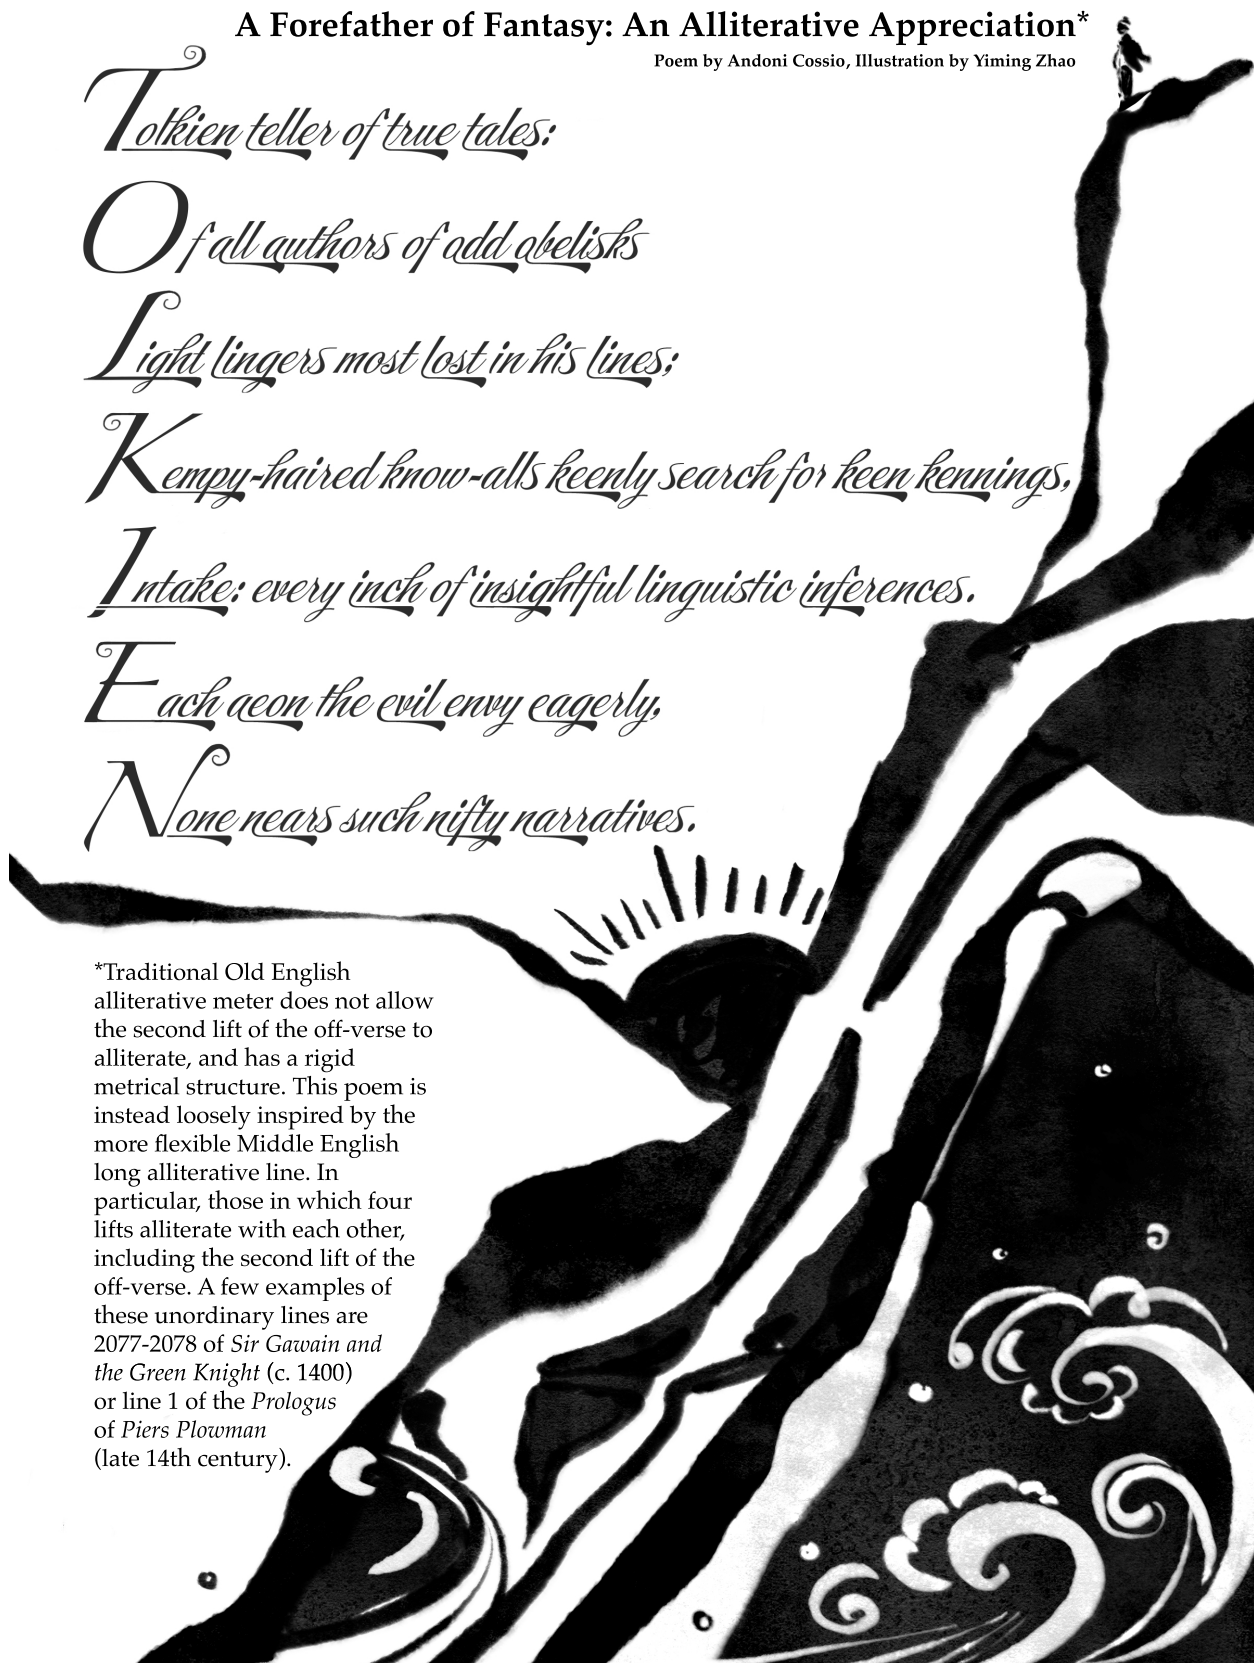 A Forefather of Fantasy: An Alliterative Appreciation*
Poem by Andoni Cossio, Illustration by Yiming Zhao
Tolkien teller of true tales:
Of all authors of odd obelisks
Light lingers most lost in his lines;
Kempy-haired know-alls keenly search for keen kennings,
Intake: every inch of insightful linguistic inferences.
Each aeon the evil envy eagerly,
None nears such nifty narratives.
*Traditional Old English
alliterative meter does not allow
the second lift of the off-verse to
alliterate, and has a rigid
metrical structure. This poem is
instead loosely inspired by the
more flexible Middle English
long alliterative line. In
particular, those in which four
lifts alliterate with each other,
including the second lift of the
off-verse. A few examples of
these unordinary lines are
2077-2078 of Sir Gawain and
the Green Knight (c. 1400)
or line 1 of the Prologus
of Piers Plowman
(late 14th century).